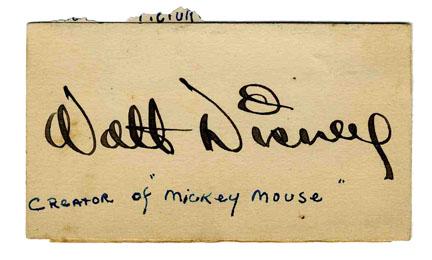 Walt Disney
CREATOR of "MICKEY MOUSE"